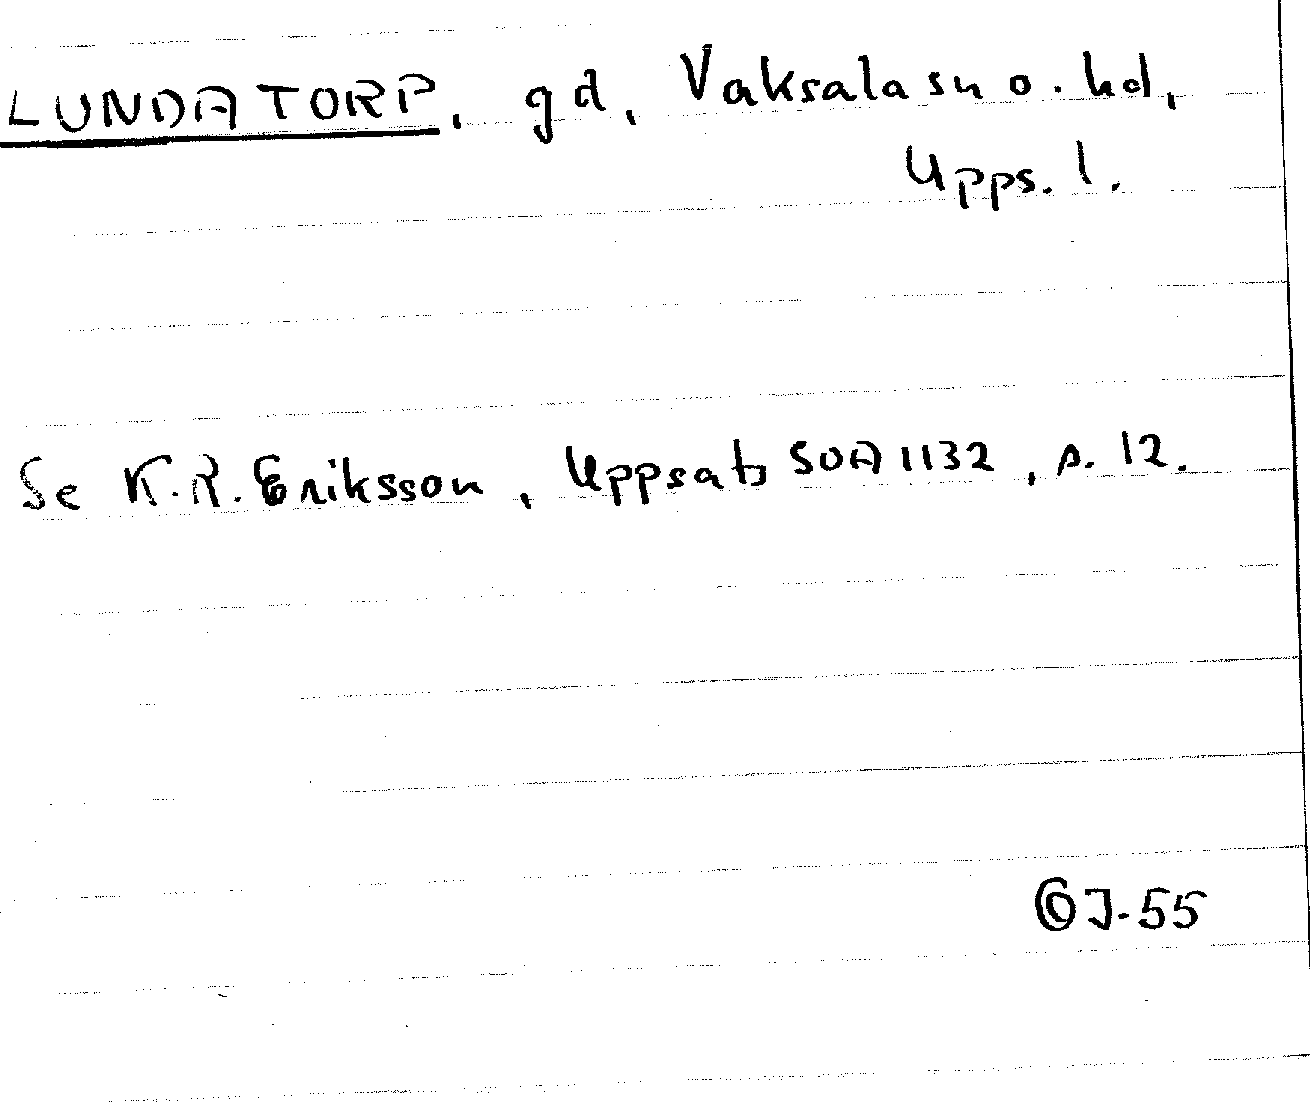 LUNDATORP, gd, Vaksala sn o. hd,
Upps. l.
Se K.R. Eriksson, Uppsats SOA 1132, s. 12.
ÖJ-55